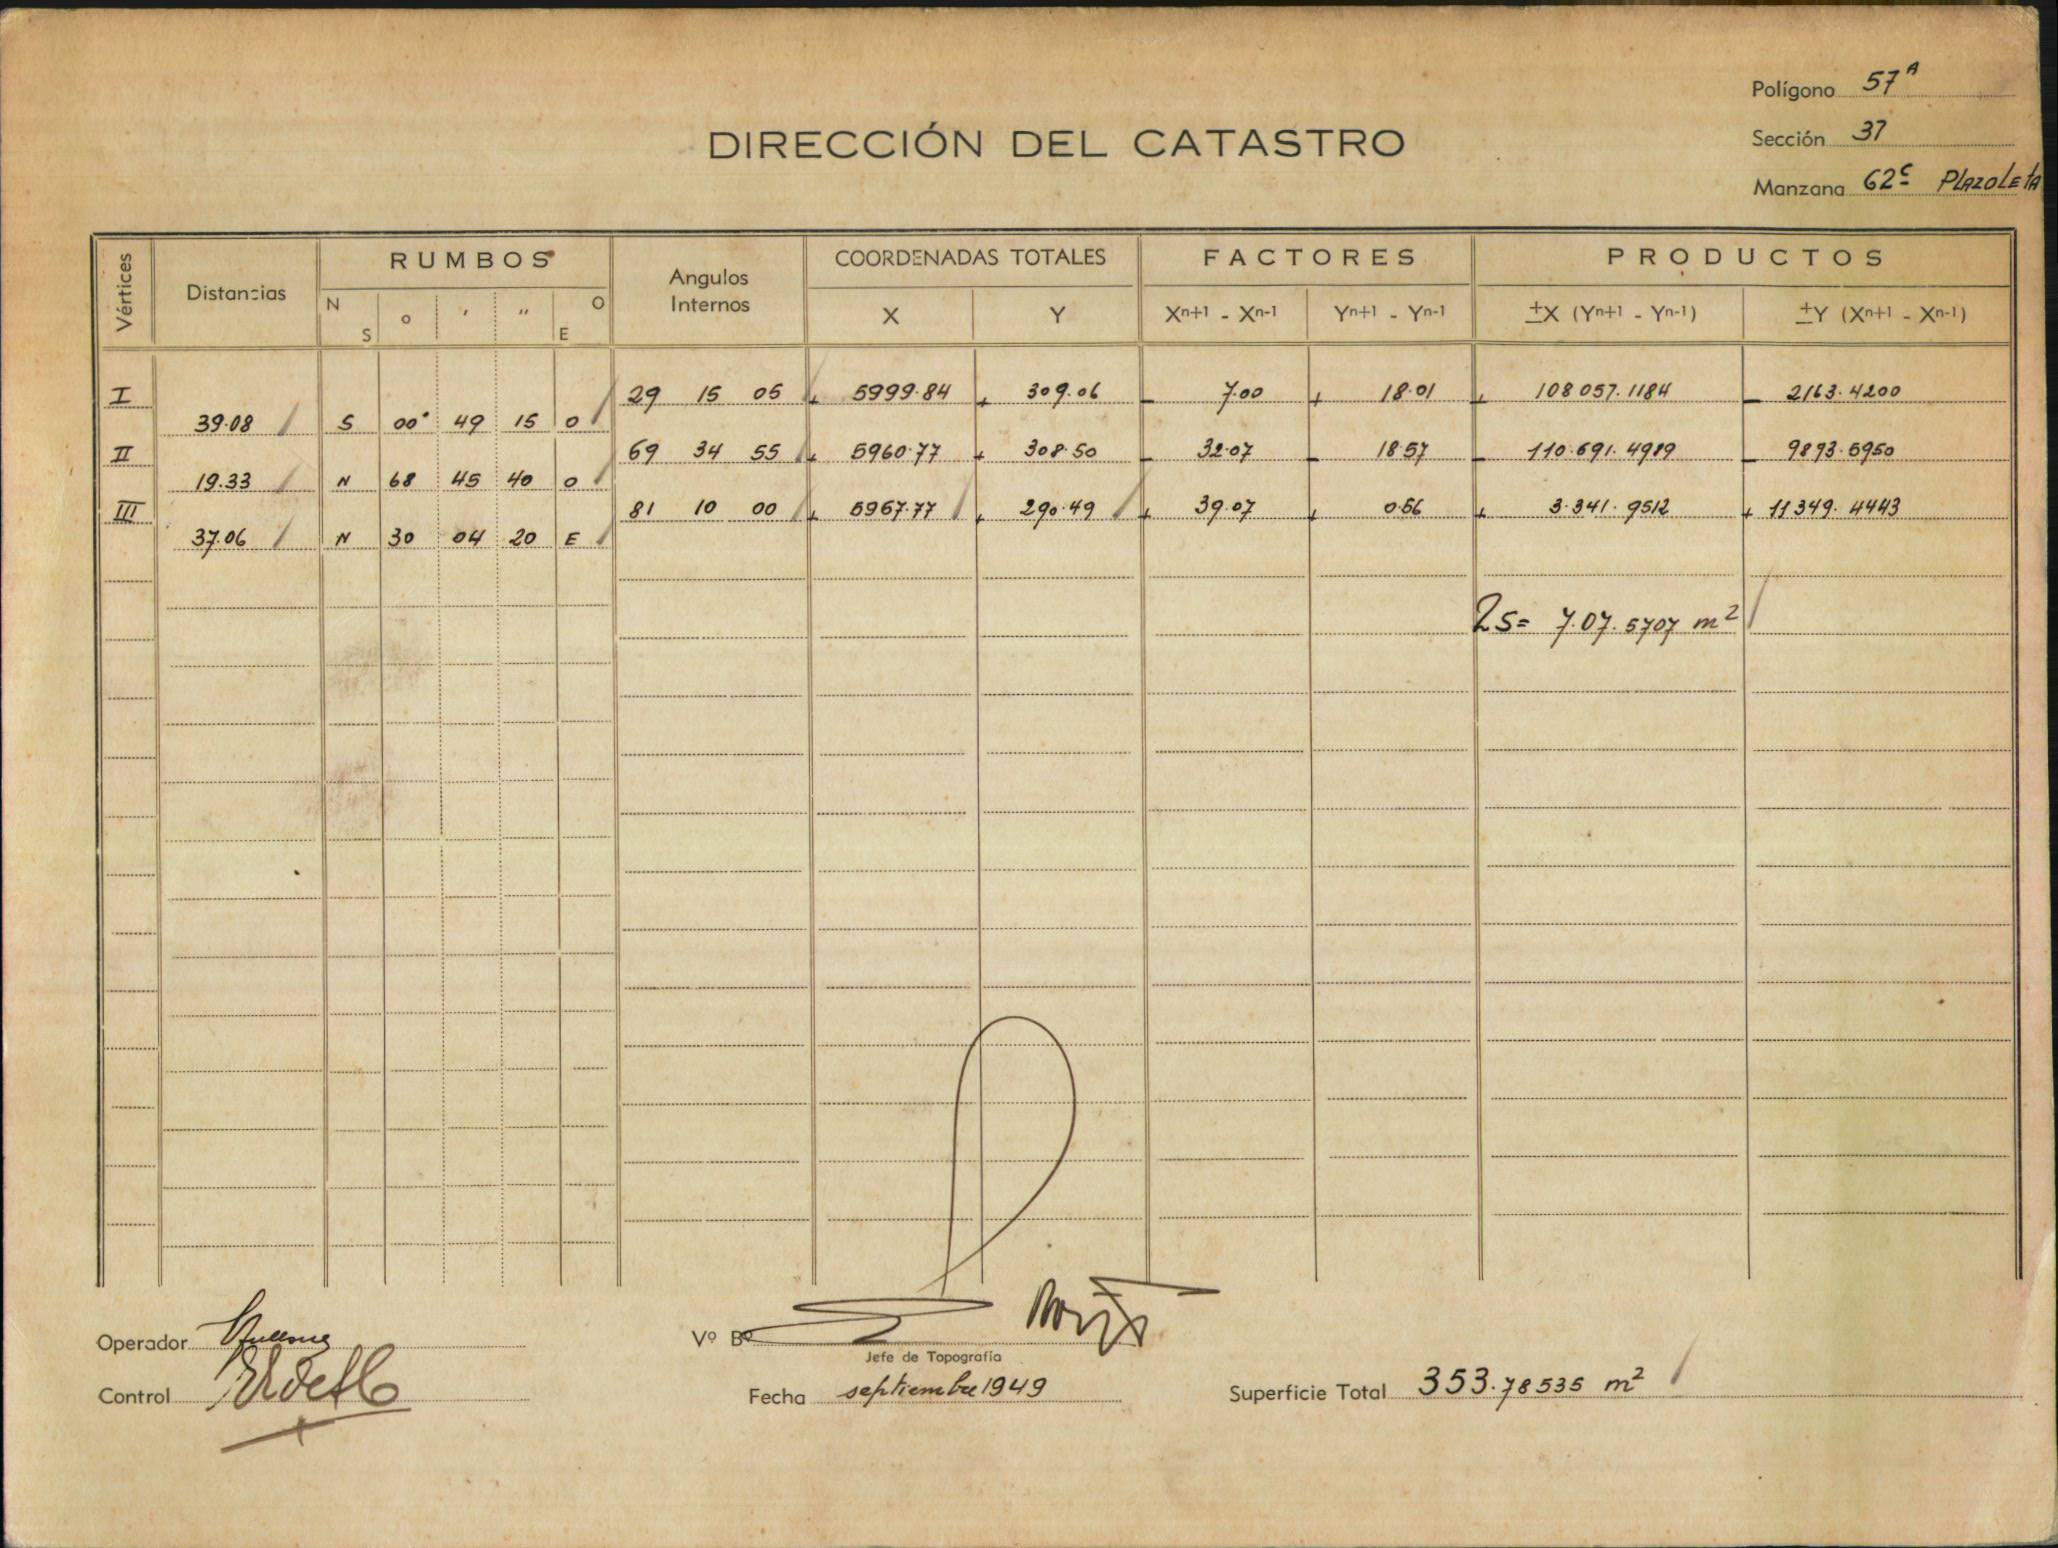 Polígono 57A
DIRECCIÓN DEL CATASTRO
Sección 37
Manzana 62c Plazoleta
Vértices Distancias RUMBOS Angulos Internos COORDENADAS TOTALES FACTORES PRODUCTOS
N S o ' '' E O X Y Xn+1 - Xn-1 Yn+1 - Yn-1 ±X (Yn+1 - Yn-1) ±Y (Xn+1 - Xn-1)
I 29 15 05 + 5999.84 + 309.06 - 7.00 + 18.01 + 108 057.1184 - 2163.4200
39.08 S 00° 49 15 O
II 69 34 55 + 5960.77 + 308.50 - 32.07 - 18.57 - 110.691.4989 - 9893.5950
19.33 N 68 45 40 O
III 81 10 00 + 5967.77 + 290.49 + 39.07 + 0.56 + 3.341.9512 + 11349.4443
37.06 N 30 04 20 E
2S= 7.07.5707 m2
Operador
Vº Bº
Jefe de Topografía
Control
Fecha septiembre 1949
Superficie Total 353.78535 m2